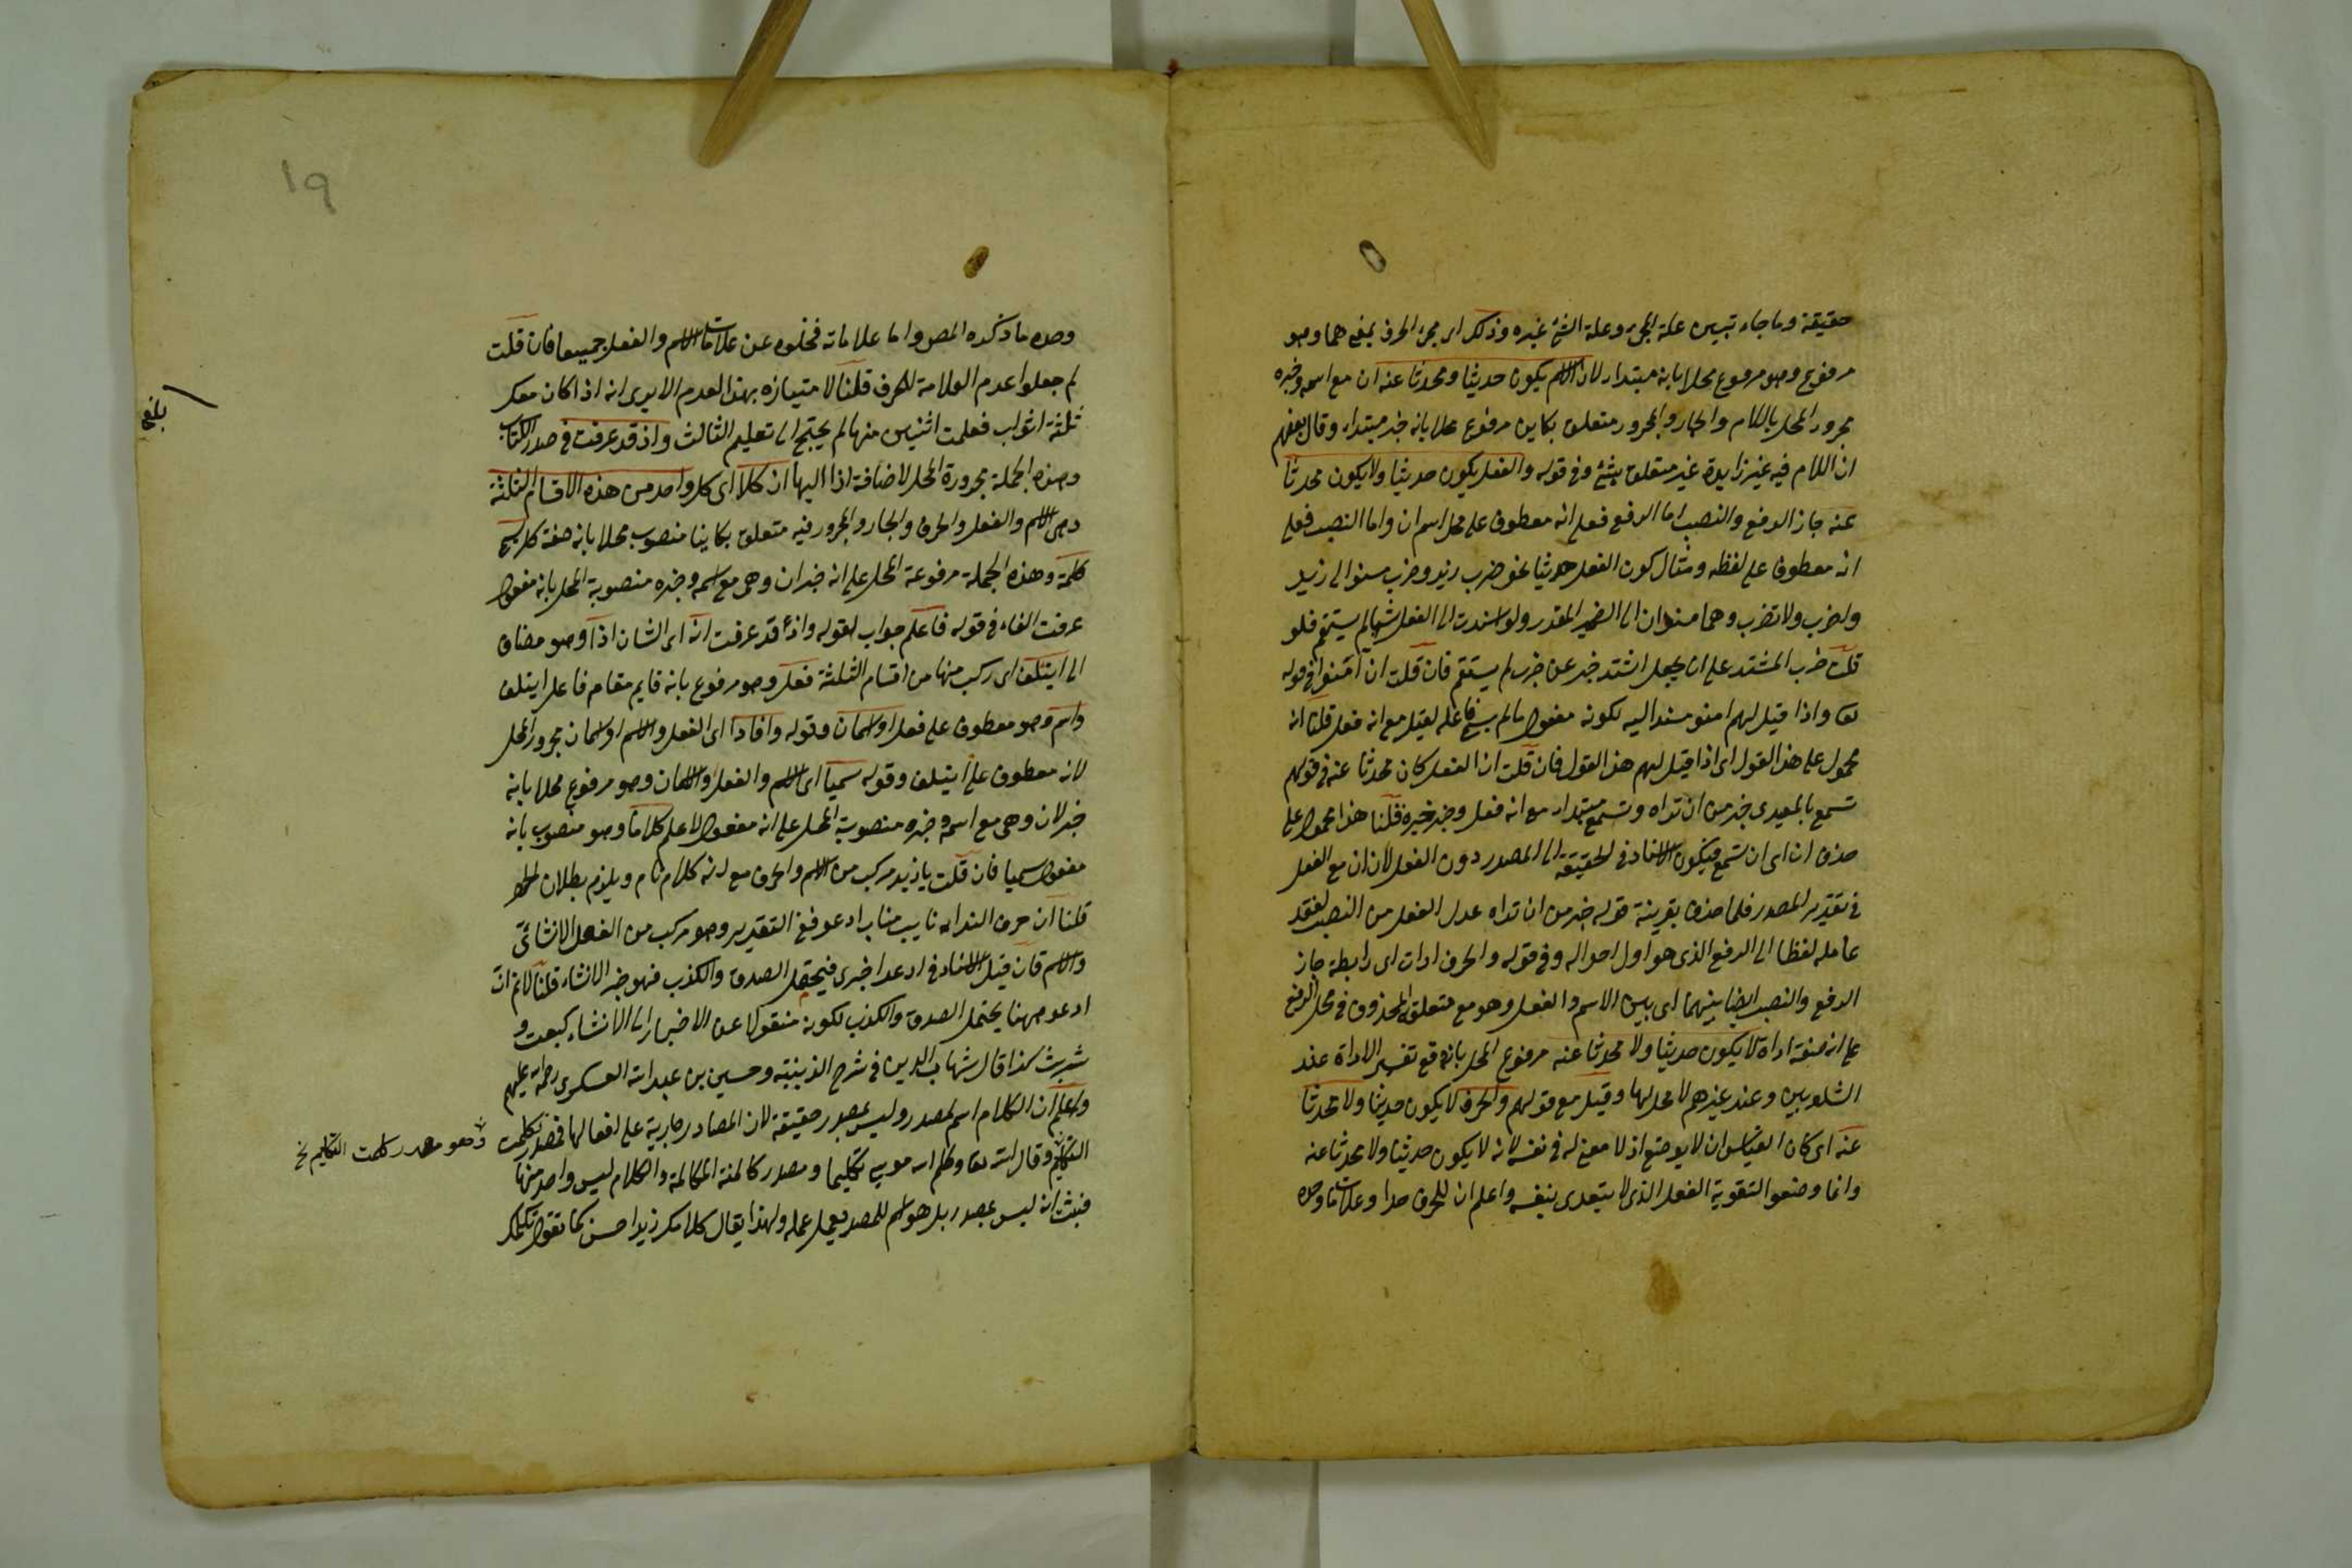 حقيقة وما جاء تبيين علة المجئ وعلة الشئ غيره وذلك اى مجئ الحرف لمعنى هما وهو
مرفوع وهو مرفوع محلا بانه مبتداء لان الاسم يكون حديثا ومحدثا عنه ان مع اسمه وخبره
مجرور المحل باللام والجار والمجرور متعلق بكاين مرفوع محلا بانه خبر مبتداء وقال بعضهم
ان اللام فيه غير زايدة غير متعلق بشئ وفى قوله والفعل يكون حديثا ولا يكون محدثا
عنه جاز الرفع والنصب اما الرفع فعلى انه معطوف على محل اسم ان واما النصب فعلى
انه معطوف على لفظه ومثال كون الفعل حديثا نحو ضرب زيد وضرب مسند الى زيد
واضرب ولا تضرب وهما مسندان الى الضمير المقدر ولو اسندت الى الفعل شيئا لم يستقم فلو
قلت ضرب اشتد على ان يجعل اشتد خبر عن ضرب لم يستقم فان قلت ان امنوا فى قوله
تعا واذا قيل لهم امنوا مسند اليه لكونه مفعول ما لم يسم فاعله لقيل مع انه فعل قلنا انه
محمول على هذا القول اى اذا قيل لهم هذا القول فان قلت ان الفعل كان محدثا عنه فى قولهم
تسمع بالمعيدى خير من ان تراه وتسمع مبتداء مع انه فعل وخبر خيره قلنا هذا محمول على
حذف ان اى ان تسمع فيكون الاسناد فى الحقيقة الى المصدر دون الفعل لان ان مع الفعل
فى تقدير المصدر فلما حذف بقرينة قوله خير من ان تراه عدل الفعل من النصب لفقد
عامله لفظا الى الرفع الذى هو اول احواله وفى قوله والحرف ادات اى رابطة جاز
الرفع والنصب ايضا بينهما اى بين الاسم والفعل وهو مع متعلق المحذوف فى محل الرفع
على انه صفة اداة لا يكون حديثا ولا محدثا عنه مرفوع المحل بانه وقع تفسير الاداة عند
الشلوبين وعند غيرهم لا محل لها وقيل مع قولهم والحرف لا يكون حديثا ولا محدثا
عنه اى كان القياس ان لا يوضع اذ لا معنى له فى نفسه لانه لا يكون حديثا ولا محدثا عنه
وانما وضعوا لتقوية الفعل الذى لا يتعدى بنفسه واعلم ان للحرف حدا وعلامات وحده
١٩
وحده ما ذكره المص واما علاماته فخلوه عن علامات الاسم والفعل جميعا فان قلت
لم جعلوا عدم العلامة للحرف قلنا لامتيازه بهذا العدم الا يرى انه اذا كان معك
ثلثة اثواب فعلمت اثنين منها لم يحتج الى تعليم الثالث واذ قد عرفت فى صدر الكتاب
وهذه الجملة مجرورة المحل لاضافة اذا اليها ان كلا اى كل واحد من هذه الاقسام الثلثة
وهى الاسم والفعل والحرف والجار والمجرور فيه متعلق بكاينا منصوب محلا بانه صفة كل
كلمة وهذه الجملة مرفوعة المحل على انه خبر ان وهى مع اسمه وخبره منصوبة المحل بانه مفعول
عرفت الفاء فى قوله فاعلم جواب لقوله واذ قد عرفت انه اى الشان اذا وهو مضاف
الى ايتلف اى ركب منها من اقسام الثلثة فعل وهو مرفوع بانه قايم مقام فاعل ايتلف
واسم وهو معطوف على فعل او اسمان وقوله وافادا اى الفعل والاسم او اسمان مجرور المحل
لانه معطوف على ايتلف وقوله سميا اى الاسم والفعل والاسمان وهو مرفوع محلا بانه
خبر لان وهى مع اسمه وخبره منصوبة المحل على انه مفعول لاعلم كلاما وهو منصوب بانه
مفعول سميا فان قلت يا زيد مركب من الاسم والحرف مع انه كلام تام ويلزم بطلان الحصر
قلنا ان حرف النداء نايب مناب ادعو ففى التقدير وهو مركب من الفعل الانشائى
والاسم فان قيل الاسناد فى ادعو اخبرى فيحتمل الصدق والكذب فهو خبر لا انشاء قلنا لا نم ان
ادعو ههنا يحتمل الصدق والكذب لكونه منقولا عن الاخبار الى الانشاء كبعت و
شريت كذا قال شهاب الدين فى شرح الذينيته وحسين بن عبد الله العسكرى رحمة الله عليهم
واعلم ان الكلام اسم لمصدر وليس بمصدر حقيقة لان المصادر جارية على افعالها فمصدر تكلمت
التكلم وقال الله تعا وكلم الله موسى تكليما ومصدر كالمته المكالمة والكلام ليس واحد منها
فثبت انه ليس بمصدر بل هو اسم للمصدر يعمل عمله ولهذا يقال كلامك زيدا حسن كما تقول تكليمك
وهو مصدر كلمت التكليم نخ
بلغ